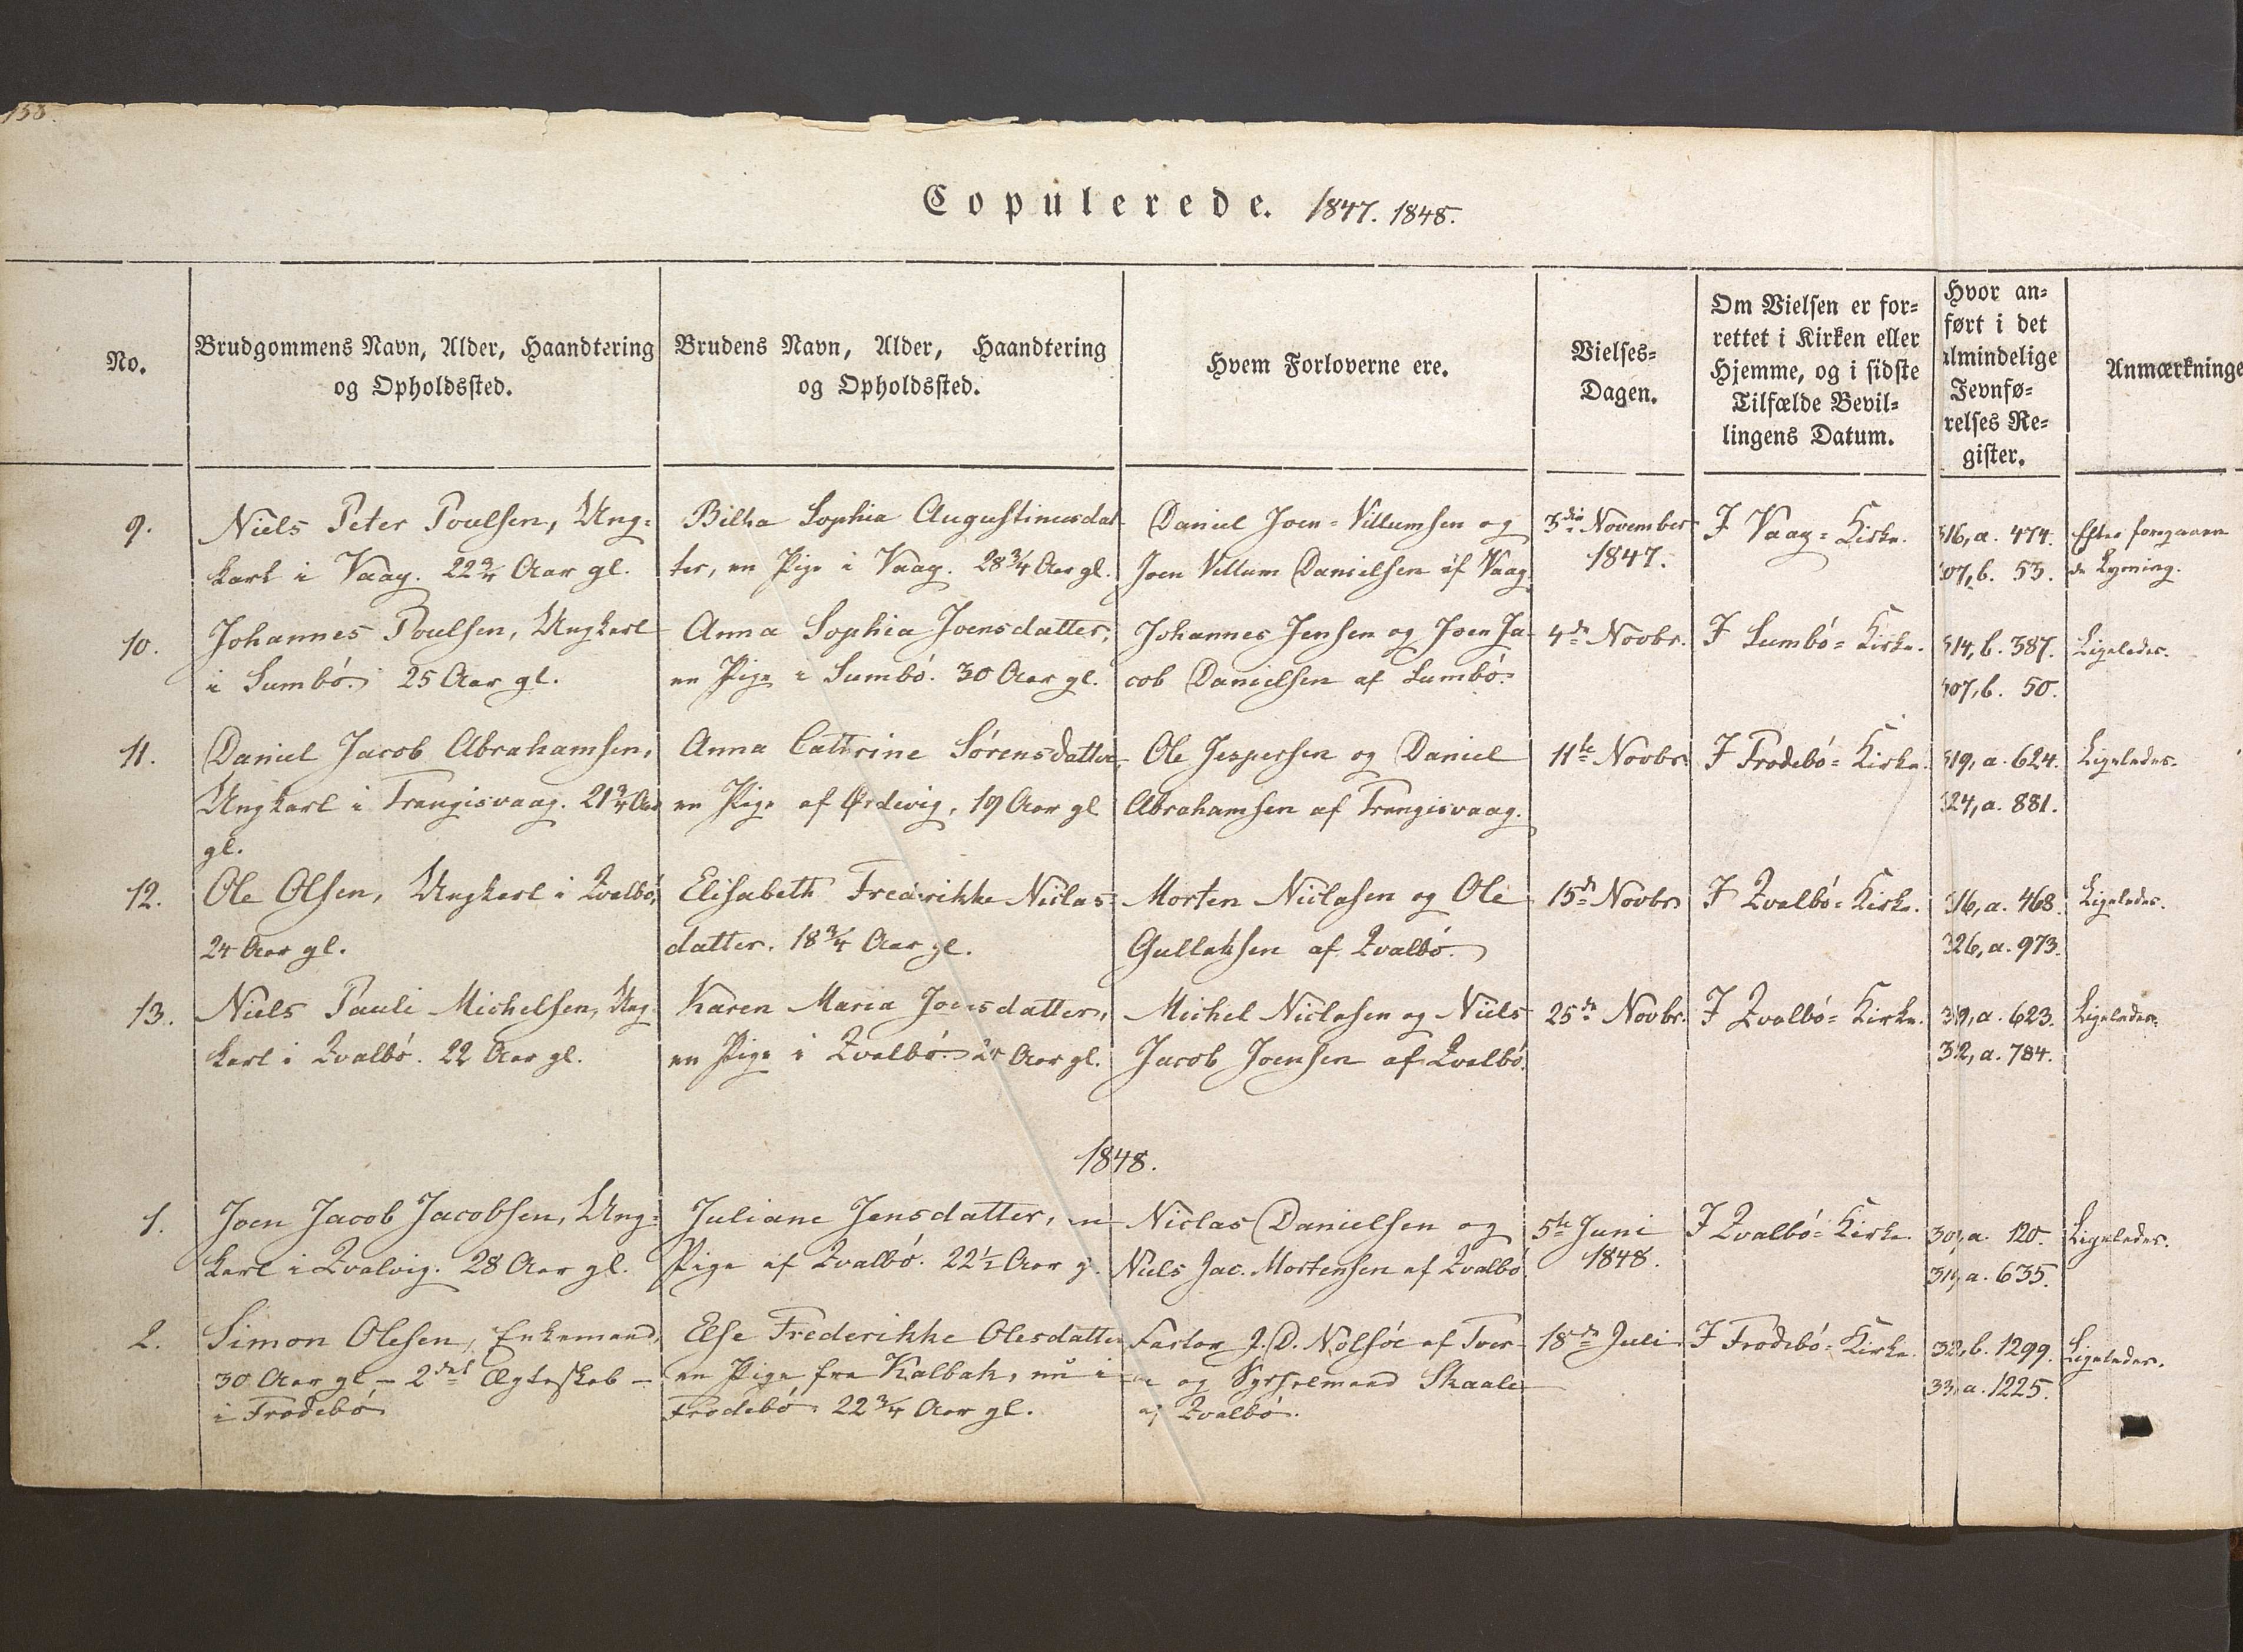 158.
Copulerede. 1847. 1848.
No.
Brudgommens Navn, Alder, Haandtering
og Opholdssted.
Brudens Navn, Alder, Haandtering
og Opholdssted.
Hvem Forloverne ere.
Vielses-
Dagen.
Om Vielsen er for-
rettet i Kirken eller
Hjemme, og i sidste
Tilfælde Bevil-
lingens Datum.
Hvor an-
ført i det
almindelige
Jevnfø-
relses Re-
gister.
Anmærkninge
9.
Niels Peter Poulsen, Ung-
karl i Vaag. 22 3/4 Aar gl.
Bilha Sophia Augustinusdat
ter, en Pige i Vaag. 28 3/4 Aar gl.
Daniel Joen-Villumsen og
Joen Villum Danielsen af Vaag
3die November
1847.
I Vaag-Kirke.
316, a. 474.
307, b. 53.
Efter foregaaen
de Lysning.
10.
Johannes Poulsen, Ungkarl
i Sumbö. 25 Aar gl.
Anna Sophia Joensdatter,
en Pige i Sumbö. 30 Aar gl.
Johannes Jensen og Joen Ja-
cob Danielsen af Sumbö.
4de Novbr.
I Sumbö-Kirke.
314, b. 387.
307, b. 50.
Ligeledes.
11.
Daniel Jacob Abrahamsen,
Ungkarl i Trangisvaag. 21 3/4 Aar
gl.
Anna Cathrine Sörensdatter,
en Pige af Ördevig, 19 Aar gl
Ole Jespersen og Daniel
Abrahamsen af Trangisvaag.
11te Novbr.
I Frodebö-Kirke.
319, a. 624.
324, a. 881.
Ligeledes.
12.
Ole Olsen, Ungkarl i Qvalbö,
24 Aar gl.
Elisabeth Frederikke Niclas-
datter. 18 3/4 Aar gl.
Morten Niclasen og Ole
Gullaksen af Qvalbö.
15de Novbr
I Qvalbö-Kirke.
316, a. 468.
326, a. 973.
Ligeledes.
13.
Niels Pauli Michelsen, Ung
karl i Qvalbö. 22 Aar gl.
Karen Maria Joensdatter,
en Pige i Qvalbö. 24 Aar gl.
Michel Niclasen og Niels
Jacob Joensen af Qvalbö.
25de Novbr.
I Qvalbö-Kirke.
319, a. 623.
32, a. 784.
Ligeledes.
1848.
1.
Joen Jacob Jacobsen, Ung-
karl i Qvalvig. 28 Aar gl.
Juliane Jensdatter, en
Pige af Qvalbö. 22 1/2 Aar g.
Niclas Danielsen og
Niels Jac. Mortensen af Qvalbö
5te Juni
1848.
I Qvalbö-Kirke
30, a. 120.
31, a. 635.
Ligeledes.
2.
Simon Olesen, Enkemand,
30 Aar gl - 2det Ægteskab -
i Frodebö
Else Frederikke Olesdatter
en Pige fra Kalbak, nu i
Frodebö. 22 3/4 Aar gl.
Factor J. D. Nolsöe af Tver-
og Sysselmand Skaale
af Qvalbö.
18de Juli
I Frodebö-Kirke.
32, b. 1299.
33, a. 1225.
Ligeledes.